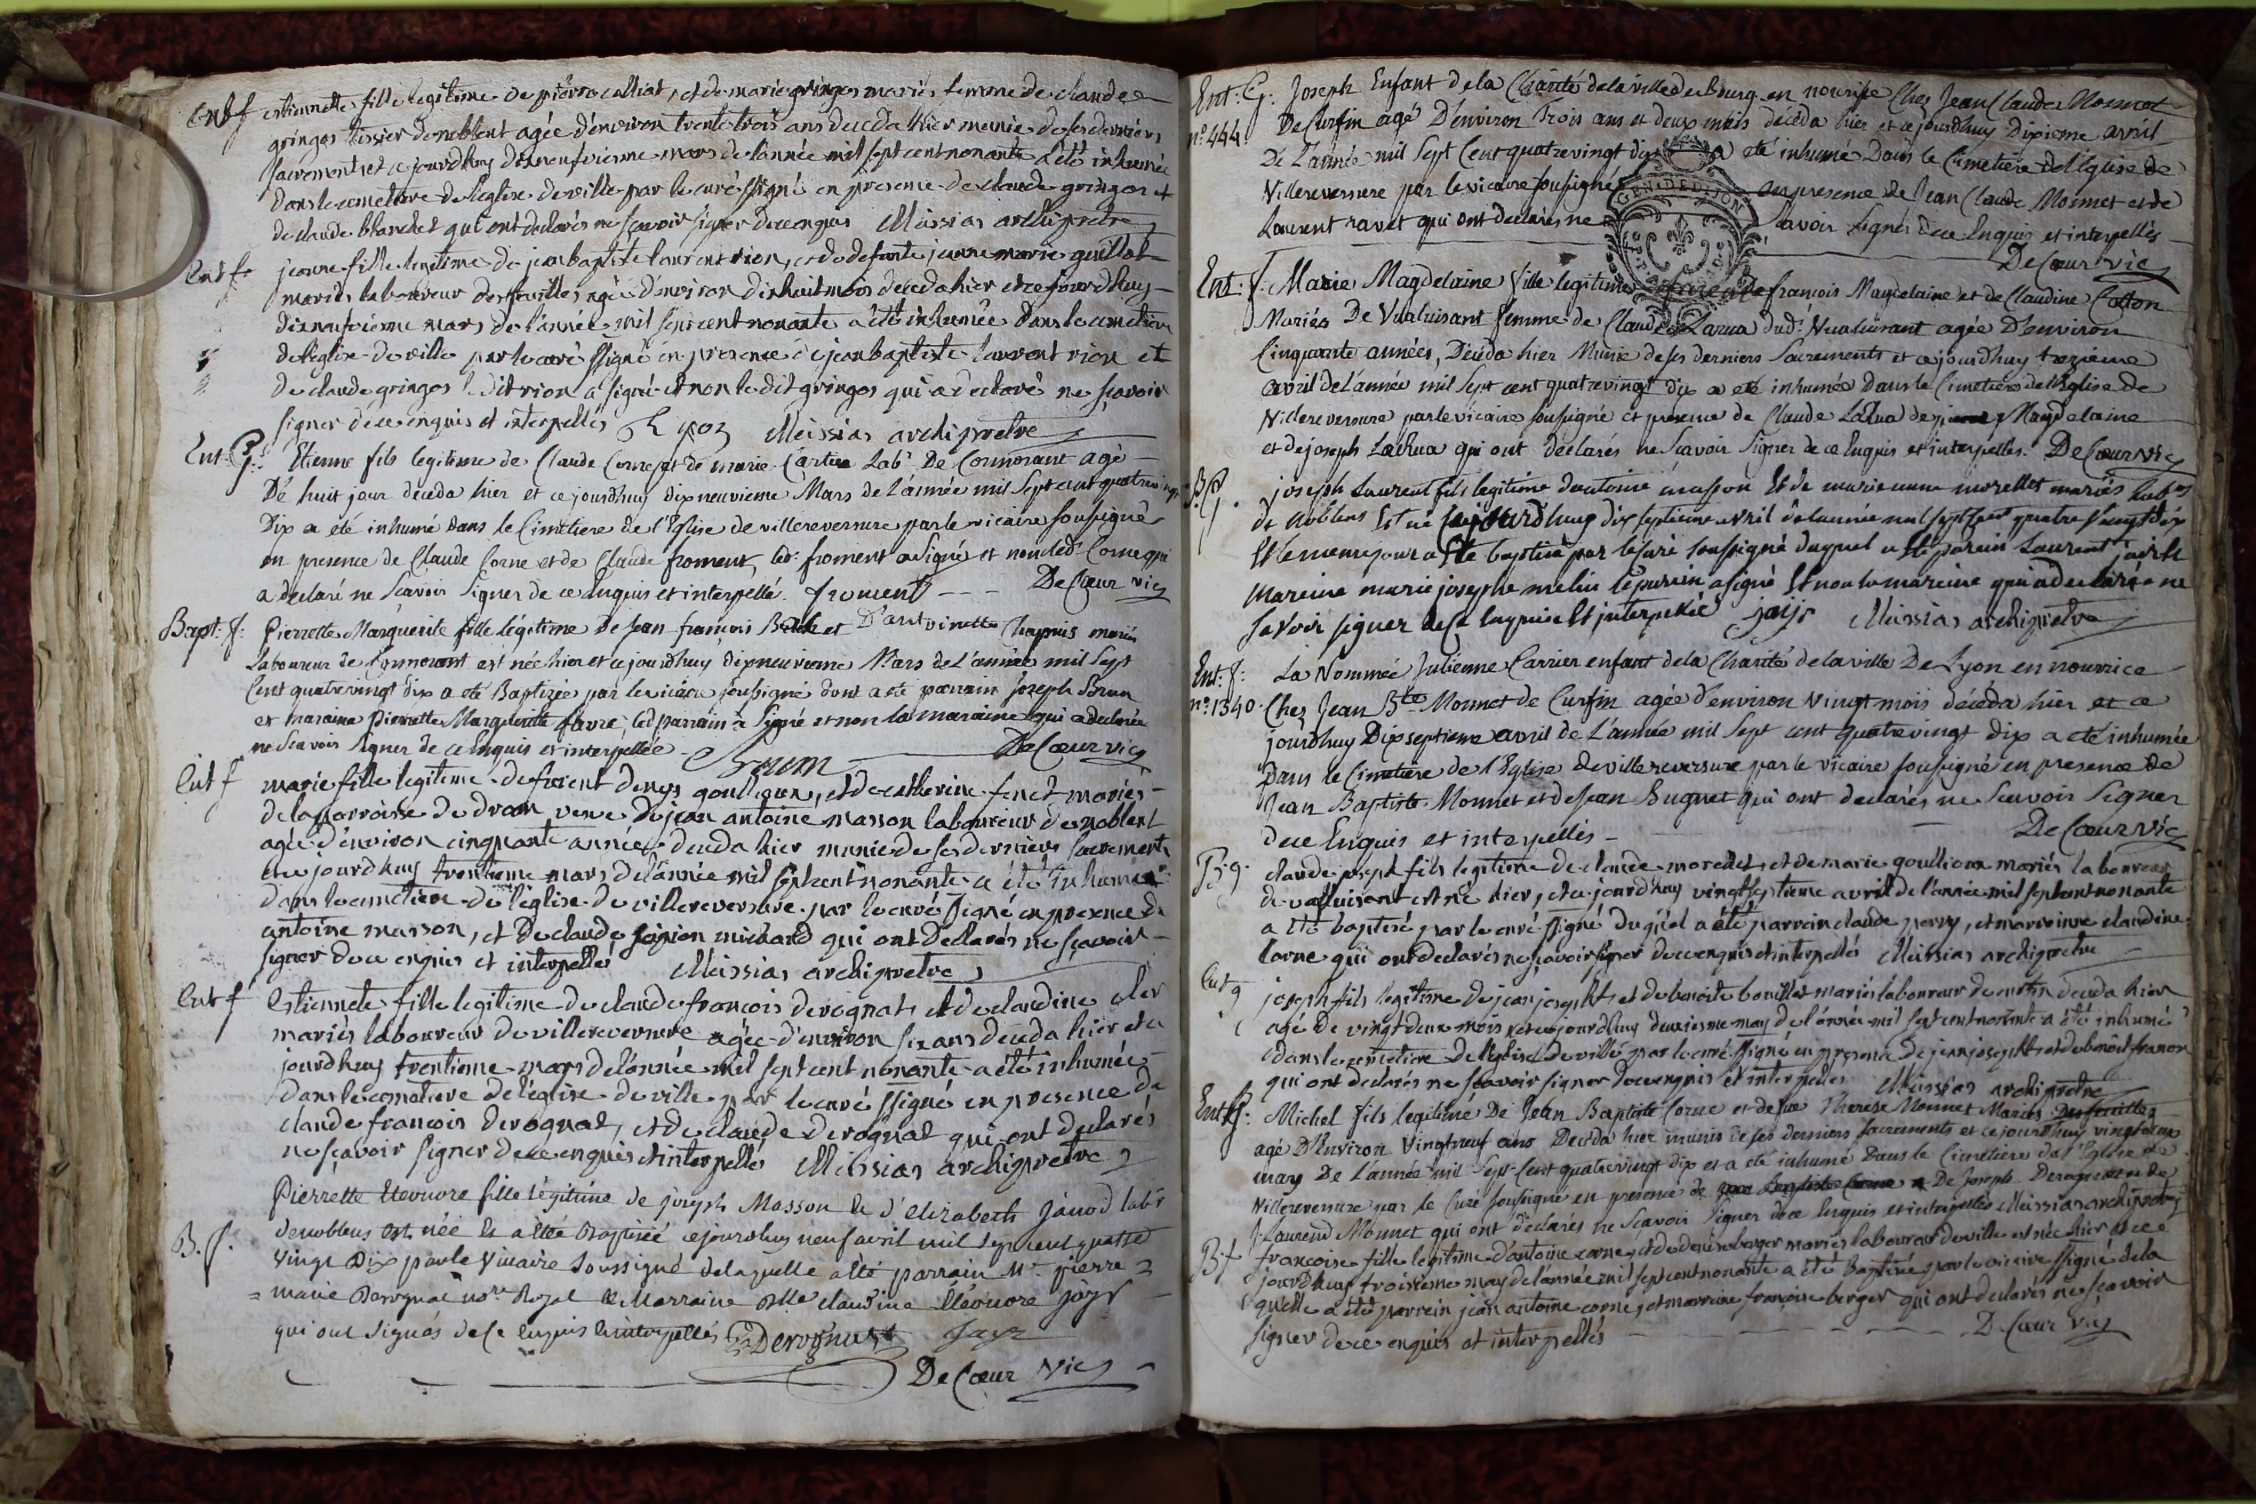 Ent f estiennette fille legitime de pierre calliat, et de marie gringos mariés femme de claude
gringos tissier de noblent agée d'environ trente trois ans deceda hier munie de ses derniers
sacrements et ce jourd'huy dixneufvieme mars de l'année mil sept cent nonante a été inhumée
dans le cimetiere de l'eglise de ville par le curé ssigné en presence de claude gringos et
de claude blanchet qui ont declarés ne sçavoir signer de ce enquis Messias archipretre
Ent f jeanne fille legitime de jean baptiste laurent rion, et de defunte jeanne marie guillot
mariés laboureur des feuilles agée d'environ dixhuit mois deceda hier et ce jourd'huy
dixneufvieme mars de l'année mil sept cent nonante a été inhumée dans le cimetiere
de l'eglise de ville par le curé ssigné en presence de jean baptiste laurent rion et
de claude gringos ledit rion a signé et non le dit gringos qui a declaré ne sçavoir
signer de ce enquis et interpellés Messias archipretre
Ent. G: Etienne fils legitime de Claude Corne et de marie Cartier Lab.r De Cormorant agé
De huit jour décéda hier et ce jourdhuy dixneuvieme Mars de L'année mil Sept cent quatrevingt
Dix a eté inhumé dans le Cimetiere de l'Eglise de villereversure par le vicaire soussigné
en presence de Claude Corne et de Claude froment, led. froment a signé et non led. Corne qui
a declaré ne Scavoir Signer de ce Enquis et interpellé. froment De Cœur vic
Bapt. f: Pierrette Marguerite fille légitime de Jean françois et D'antoinette Chapuis mariés
Laboureur de Cormorant est née hier et ce jourdhuy dixneuvieme Mars de L'année mil Sept
Cent quatrevingt dix a eté Baptizée par le vicaire soussigné dont a eté parrain Joseph Brun
et maraine Pierrette Marguerite favre, led parrain a Signé et non la maraine qui a declarée
ne Scavoir Signer de ce Enquis et interpellée Brun De Cœur vic
Ent f marie fille legitime de denys goullioux, et de catherine fenet mariés
de la parroisse de drom veuve de jean antoine masson laboureur de noblent
agée d'environ cinquante années deceda hier munie de ses derniers sacrements
et ce jourd'huy trentieme mars de l'année mil sept cent nonante a été inhumée
dans le cimetiere de l'eglise de villereversure par le curé ssigné en presence de
antoine masson, et de claude michaud qui ont declarés ne sçavoir
signer de ce enquis et interpellés Messias archipretre
Ent f Estiennete fille legitime de claude françois derognat, et de claudine
mariés laboureur de villereversure agée d'environ six ans deceda hier et ce
jourd'huy trentieme mars de l'année mil sept cent nonante a été inhumée
dans le cimetiere de l'eglise de ville par le curé ssigné en presence de
claude francois derognat, et de claude derognat qui ont declarés
ne sçavoir signer de ce enquis et interpellés Messias archipretre
Pierrette Eleonore fille légitime de joseph Masson et d'elizabeth Janod lab.r
B. f. de noblens est née et a été Baptisée ce jourdhuy neuf avril mil sept cent quatre
vingt Dix par le Vicaire Soussigné de laquelle a été parrain M.r pierre
= marie Derognat no.re Royal & Marraine Dlle claudine Eléonore jayr
qui ont signés de ce enquis & interpellés Derognat Jayr
De Cœur Vic
Ent. G: Joseph Enfant de la Charité de la ville de Bourg en nourise Chez Jean Claude Monnet
n.º 444 De Curfin agé D'environ Trois ans et deux mois décéda hier et ce jourdhuy Dixieme avril
De L'année mil Sept Cent quatrevingt dix a eté inhumé Dans le Cimetiere de l'Eglise de
Villereversure par le vicaire soussigné en presence de Jean Claude Monnet et de
Laurent ravet qui ont declarés ne Savoir Signer de ce Enquis et interpellés
GEN. DE DIJON
De Cœur vic
Ent: f: Marie Magdelaine fille legitime de françois Magdelaine et de Claudine Cotton
Mariés De Valuisant femme de Claude Larua dud. Valuisant agée D'environ
Cinquante années, Décéda hier Munie de ses derniers Sacrements et ce jourdhuy trezieme
avril de L'année mil Sept cent quatrevingt dix a eté inhumée dans le Cimetiere de l'Eglise de
Villereversure par le vicaire soussigné et presence de Claude LaRua de Magdelaine
et de joseph LaRua qui ont declarés ne Scavoir Signer de ce Enquis et interpellés. De Cœur vic
B. g. joseph Laurent fils legitime dantoine masson Et de marie anne morellet mariés lab.rs
de noblens Est né aujourdhuy dix septieme avril de lannée mil sept cent quatre vingt dix
Et le meme jour a Eté baptisé par le curé soussigné duquel a Eté parain Laurent jair et
mareine marie josephe melin le parain a signé Et non la mareine qui a declaré ne
savoir signer de ce enquise Et interpellée jair Messias archipretre
Ent: f: La Nommée Julienne Carrier enfant de la Charité de la ville De Lyon en nourrice
n.º 1340 Chez Jean B.te Monnet de Curfin agée d'environ Vingt mois décéda hier et ce
jourdhuy Dixseptieme avril de L'année mil Sept cent quatrevingt dix a eté inhumée
Dans le Cimetiere de l'Eglise de villereversure par le vicaire soussigné en presence de
Jean Baptiste Monnet et de Jean Buguet qui ont declarés ne Scavoir Signer
de ce Enquis et interpellés De Cœur Vic
B. g. claude joseph fils legitime de claude morellet, et de marie goullioux mariés laboureur
de valluisant est né hier, et ce jourd'huy vingtseptieme avril de l'année mil sept cent nonante
a été baptisé par le curé ssigné duquel a été parrain claude perry, et marraine claudine
corne qui ont declarés ne sçavoir signer de ce enquis et interpellés Messias archipretre
Ent g joseph fils legitime de jean joseph, et de benoite bouillet mariés laboureur de deceda hier
agé de vingt deux mois, et ce jourd'huy deuxieme may de l'année mil sept cent nonante a été inhumé
dans le cimetiere de l'eglise de ville par le curé ssigné en presence de jean joseph et de benoit
qui ont declarés ne sçavoir signer de ce enquis et interpellés Messias archipretre
Ent. G: Michel fils legitime De Jean Baptiste Corne et de Therese Monnet Mariés des feuilles
agé D'Environ Vingtneuf ans Deceda hier munis de ses derniers sacrements et ce jourdhuy
may De L'année mil Sept Cent quatrevingt dix et a eté inhumé Dans le Cimetiere de l'Eglise de
Villereversure par le Curé soussigné en presence de De Joseph Derognat et de
J. Laurend Monnet qui ont déclarés ne Scavoir Signer de ce Enquis et interpellés Messias archipretre
B. f francoise fille legitime d'antoine corne, et de denise berger mariés laboureur de ville est née hier et ce
jourd'huy troisieme may de l'année mil sept cent nonante a été baptisée par le vicaire ssigné de la
quelle a été parrein jean antoine corne, et marreine françoise berger qui ont declarés ne sçavoir
signer de ce enquis et interpellés De Cœur Vic